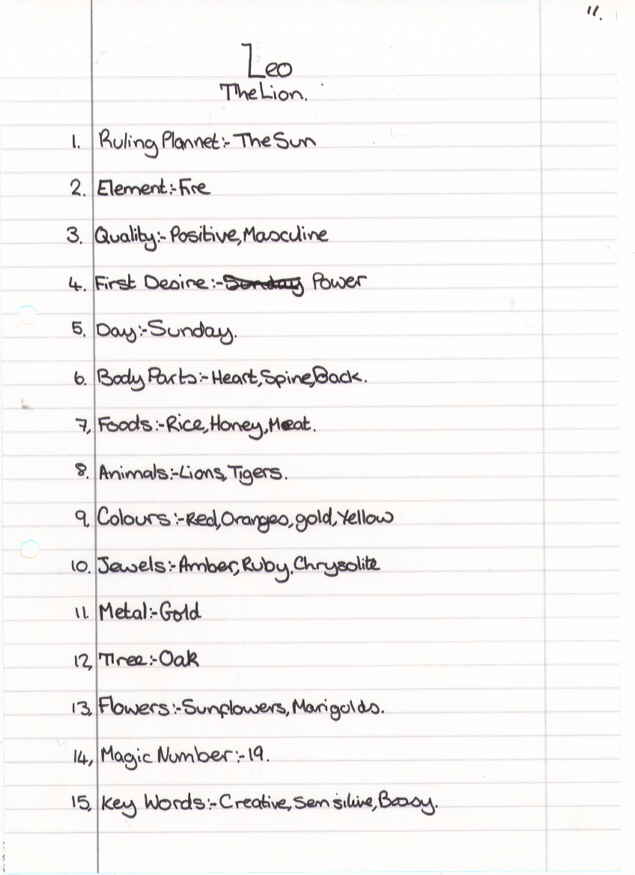 11.
Leo
The Lion.
1. Ruling Plannet:- The Sun
2. Element:- Fire
3. Quality:- Positive, Masculine
4. First Desire:- Sunday Power
5. Day:- Sunday.
6. Body Parts:- Heart, Spine, Back.
7, Foods:- Rice, Honey, Meat.
8. Animals:- Lions, Tigers.
9. Colours:- Red, Oranges, gold, Yellow
10. Jewels:- Amber, Ruby, Chrysolite
11. Metal:- Gold
12, Tree:- Oak
13, Flowers:- Sunflowers, Marigolds.
14, Magic Number:- 19.
15, Key Words:- Creative, Sensitive, Bossy.